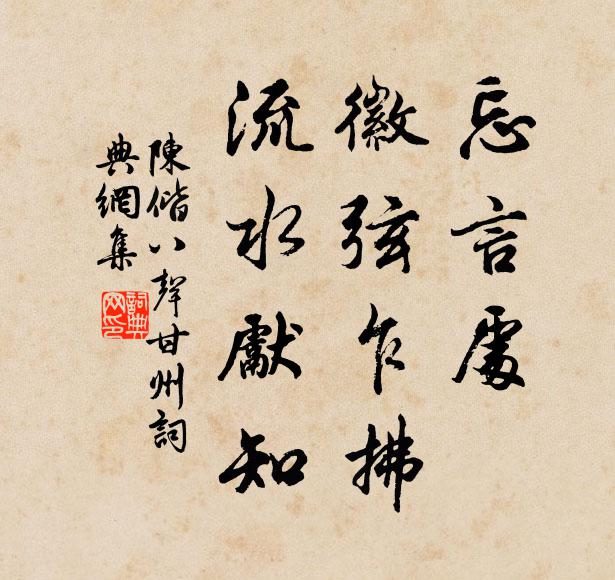 忘言處
徽弦乍拂
流水獻知
陳偕八聲甘州詞
典網集
詞典
网印